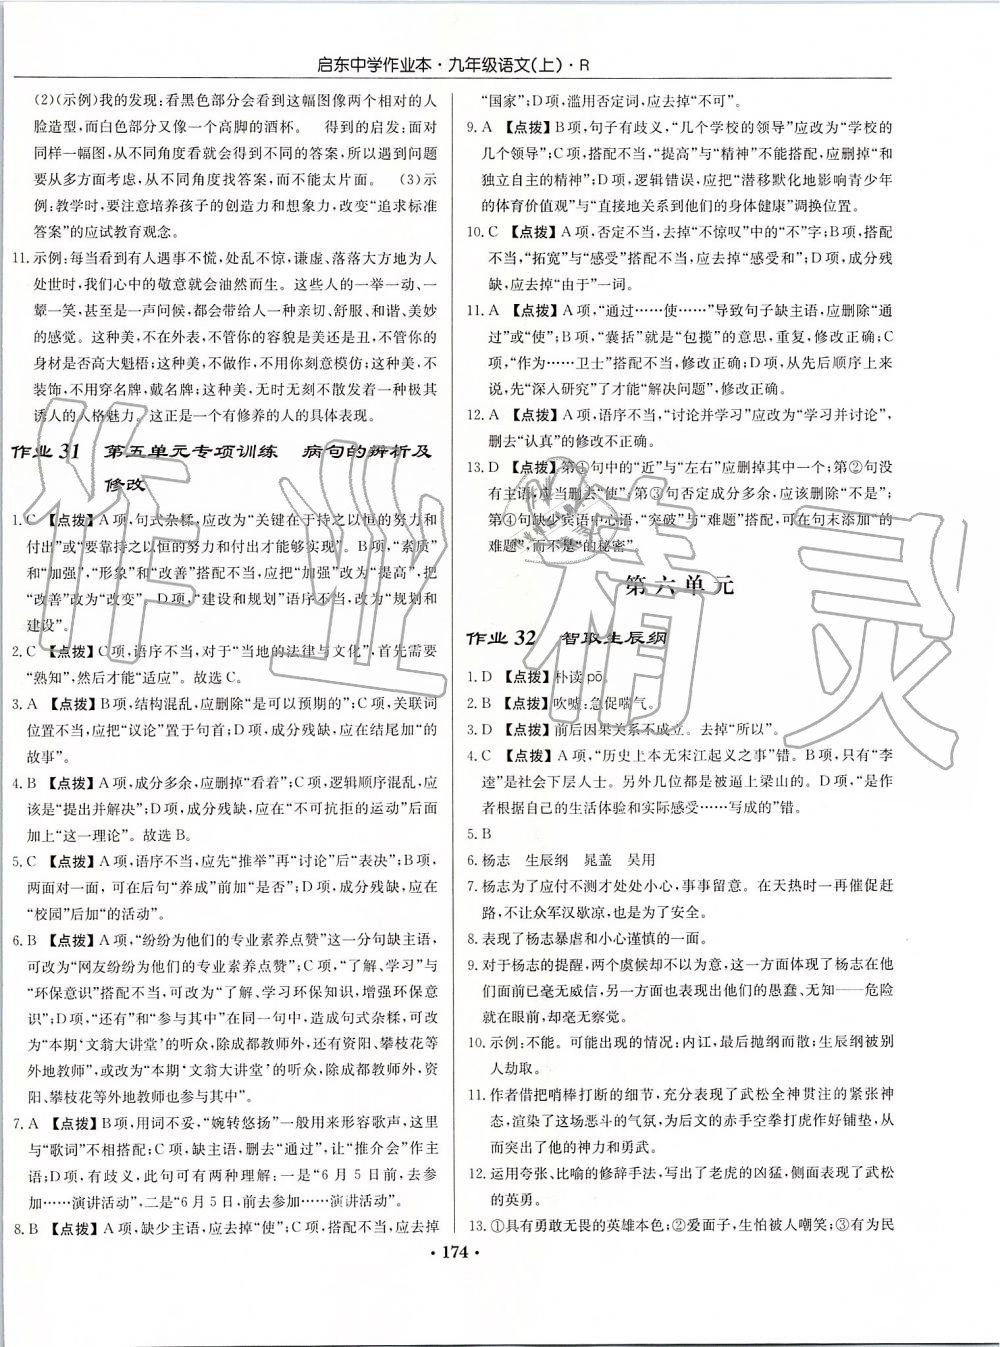 启东中学作业本·九年级语文(上)·R
(2)(示例)我的发现:看黑色部分会看到这幅图像两个相对的人
脸造型,而白色部分又像一个高脚的酒杯。　得到的启发:面对
同样一幅图,从不同角度看就会得到不同的答案,所以遇到问题
要从多方面考虑,从不同角度找答案,而不能太片面。　(3)示
例:教学时,要注意培养孩子的创造力和想象力,改变“追求标准
答案”的应试教育观念。
11. 示例:每当看到有人遇事不慌,处乱不惊,谦虚、落落大方地为人
处世时,我们心中的敬意就会油然而生。这些人的一举一动、一
颦一笑,甚至是一声问候,都会带给人一种亲切、舒服、和谐、美妙
的感觉。这种美,不在外表,不管你的容貌是美还是丑,不管你的
身材是否高大魁梧;这种美,不做作,不用刻意模仿;这种美,不
装饰,不用穿名牌,戴名牌;这种美,无时无刻不散发着一种极其
诱人的人格魅力。这正是一个有修养的人的具体表现。
作业 31　第五单元专项训练　病句的辨析及
修改
1. C　【点拨】A 项,句式杂糅,应改为“关键在于持之以恒的努力和
付出”或“要靠持之以恒的努力和付出才能够实现”。B项,“素质”
和“加强”,“形象”和“改善”搭配不当,应把“加强”改为“提高”,把
“改善”改为“改变”。D项,“建设和规划”语序不当,改为“规划和
建设”。
2. C　【点拨】C项,语序不当,对于“当地的法律与文化”,首先需要
“熟知”,然后才能“适应”。故选 C。
3. A　【点拨】B项,结构混乱,应删除“是可以预期的”;C项,关联词
位置不当,应把“议论”置于句首;D项,成分残缺,应在结尾加“的
故事”。
4. B　【点拨】A 项,成分多余,应删掉“看着”;C项,逻辑顺序混乱,应
该是“提出并解决”;D项,成分残缺,应在“不可抗拒的运动”后面
加上“这一理论”。故选 B。
5. C　【点拨】A项,语序不当,应先“推举”再“讨论”后“表决”;B项,
两面对一面,可在后句“养成”前加“是否”;D项,成分残缺,应在
“校园”后加“的活动”。
6. B　【点拨】A 项,“纷纷为他们的专业素养点赞”这一分句缺主语,
可改为“网友纷纷为他们的专业素养点赞”;C项,“了解、学习”与
“环保意识”搭配不当,可改为“了解、学习环保知识,增强环保意
识”;D项,“还有”和“参与其中”在同一句中,造成句式杂糅,可改
为“本期‘文翁大讲堂’的听众,除成都教师外,还有资阳、攀枝花等
外地教师”,或改为“本期‘文翁大讲堂’的听众,除成都教师外,资
阳、攀枝花等外地教师也参与其中”。
7. A　【点拨】B项,用词不妥,“婉转悠扬”一般用来形容歌声,这里
与“歌词”不相搭配;C项,缺主语,删去“通过”,让“推介会”作主
语;D项,有歧义,此句可有两种理解:一是“6月5日前,去参
加……演讲活动”,二是“6月5日,前去参加……演讲活动”。
8. B　【点拨】A项,缺少主语,应去掉“使”;C项,搭配不当,应去掉
“国家”;D项,滥用否定词,应去掉“不可”。
9. A　【点拨】B项,句子有歧义,“几个学校的领导”应改为“学校的
几个领导”;C项,搭配不当,“提高”与“精神”不能搭配,应删掉“和
独立自主的精神”;D项,逻辑错误,应把“潜移默化地影响青少年
的体育价值观”与“直接地关系到他们的身体健康”调换位置。
10. C　【点拨】A项,否定不当,去掉“不惊叹”中的“不”字;B项,搭配
不当,“拓宽”与“感受”搭配不当,应去掉“感受和”;D项,成分残
缺,应去掉“由于”一词。
11. A　【点拨】A项,“通过……使……”导致句子缺主语,应删除“通
过”或“使”;B项,“囊括”就是“包揽”的意思,重复,修改正确;C
项,“作为……卫士”搭配不当,修改正确;D项,从先后顺序上来
说,先“深入研究”了才能“解决问题”,修改正确。
12. A　【点拨】A项,语序不当,“讨论并学习”应改为“学习并讨论”,
删去“认真”的修改不正确。
13. D　【点拨】第①句中的“近”与“左右”应删掉其中一个。第②句没
有主语,应当删去“使”。第③句否定成分多余,应该删除“不是”;
第④句缺少宾语中心语,“突破”与“难题”搭配,可在句末添加“的
难题”,而不是“的秘密”
第六单元
作业 32　智取生辰纲
1. D　【点拨】朴读 pō。
2. B　【点拨】吹嘘:急促喘气。
3. D　【点拨】前后因果关系不成立。去掉“所以”。
4. C　【点拨】A项,“历史上本无宋江起义之事”错。B项,只有“李
逵”是社会下层人士。另外几位都是被逼上梁山的。D项,“是作
者根据自己的生活体验和实际感受……写成的”错。
5. B
6. 杨志　生辰纲　晁盖　吴用
7. 杨志为了应付不测才处处小心,事事留意。在天热时一再催促赶
路,不让众军汉歇凉,也是为了安全。
8. 表现了杨志暴虐和小心谨慎的一面。
9. 对于杨志的提醒,两个虞候却不以为意,这一方面体现了杨志在他
们面前已毫无威信,另一方面也表现出他们的愚蠢、无知——危险
就在眼前,却毫无察觉。
10. 示例:不能。可能出现的情况:内讧,最后抛纲而散;生辰纲被别
人劫取。
11. 作者借把哨棒打断的细节,充分表现了武松全神贯注的紧张神
态,渲染了这场恶斗的气氛,为后文的赤手空拳打虎作好铺垫,从
而突出了他的神力和勇武。
12. 运用夸张、比喻的修辞手法,写出了老虎的凶猛,侧面表现了武松
的英勇。
13. ①具有勇敢无畏的英雄本色;②爱面子,生怕被人嘲笑;③有为民
· 174 ·
作业精灵